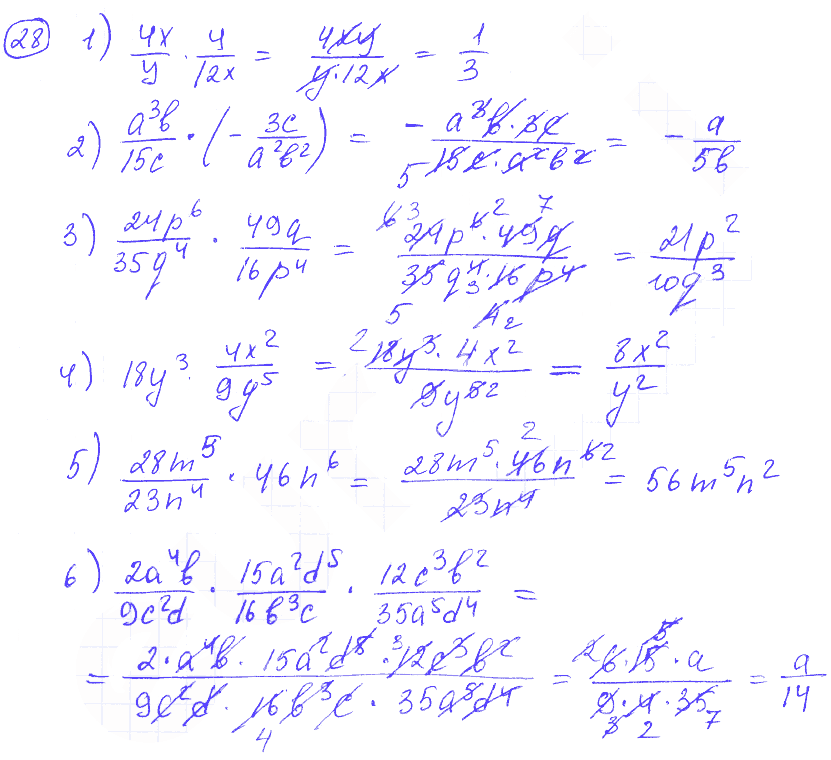 28 1) 4x/y · y/12x = 4xy/y·12x = 1/3
2) a³b/15c · (− 3c/a²b²) = − a³b·3c/15c·a²b² 5 = − a/5b
3) 24p⁶/35q⁴ · 49q/16p⁴ = 6 3 24p⁶ 2 · 49q 7/35q⁴ 3·16p⁴ 5 4 2 = 21p²/10q³
4) 18y³ · 4x²/9y⁵ = 2 18y³ · 4x²/9y⁵ 2 = 8x²/y²
5) 28m⁵/23n⁴ · 46n⁶ = 28m⁵ · 46n⁶ 2 2/23n⁴ = 56m⁵n²
6) 2a⁴b/9c²d · 15a²d⁵/16b³c · 12c³b²/35a⁵d⁴ =
= 2·a⁴b · 15a²d⁵ · 3 12c³b²/9c²d · 16b³c · 35a⁵d⁴ 4 = 2 6·15 5·a/9·4·35 3 2 7 = a/14